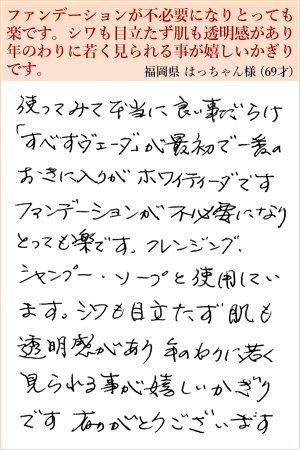 ファンデーションが不必要になりとっても
楽です。シワも目立たず肌も透明感があり
年のわりに若く見られる事が嬉しいかぎり
です。
福岡県 はっちゃん様 (69才)
使ってみて本当に良い事だらけ
「すべすヴェーダ」が最初で一番の
おきに入りが ホワイティーダです
ファンデーションが不必要になり
とっても楽です。クレンジング、
シャンプー・ソープと使用してい
ます。シワも目立たず肌も
透明感があり 年のわりに若く
見られる事が嬉しいかぎり
です ありがとうございます